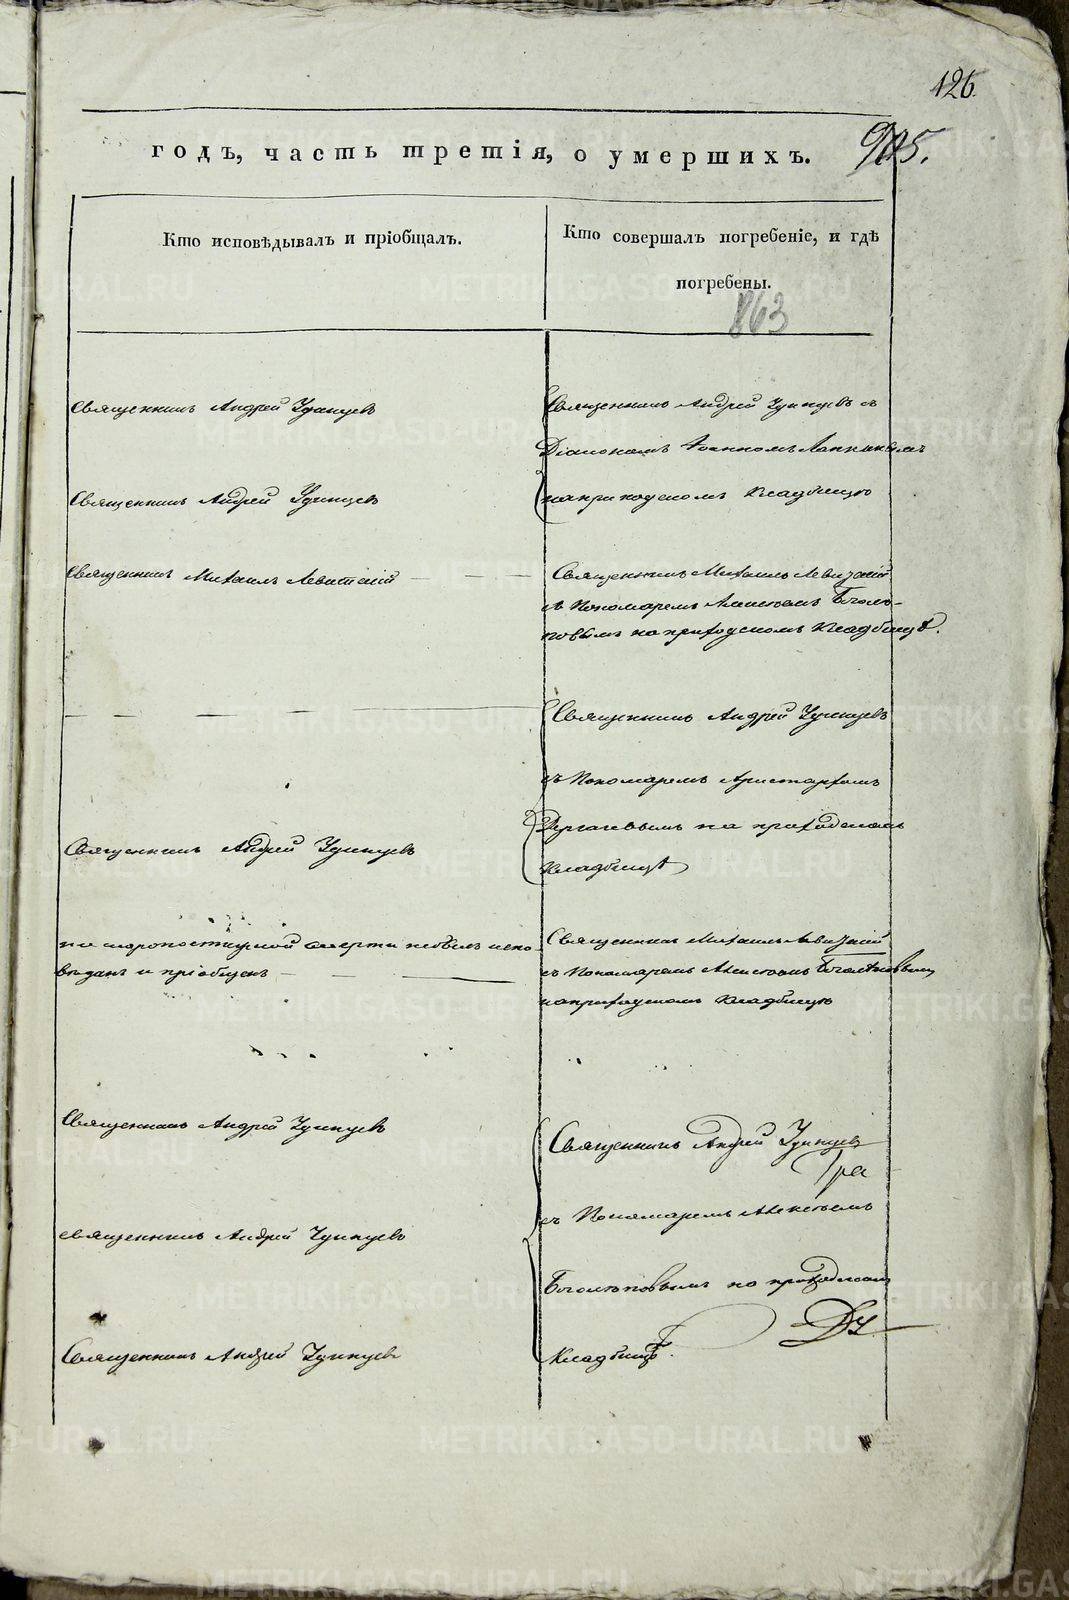 126
годъ, часть третія, о умершихъ.
905.
Кто исповѣдывалъ и пріобщалъ.
Кто совершалъ погребеніе, и гдѣ
погребены.
863
Священникъ Андрей Удинцевъ
Священникъ Андрей Удинцевъ с
Діакономъ Іоанномъ
Священникъ Андрей Удинцевъ
на приходскомъ кладбищѣ
Священникъ Михаилъ Левитскій
Священникъ Михаилъ Левитскій
съ Пономаремъ Алексѣемъ Боголѣ-
повымъ на приходскомъ кладбищѣ.
Священникъ Андрей Удинцевъ
съ Пономаремъ Аристархомъ
на приходскомъ
кладбищѣ
Священникъ Андрей Удинцевъ
по скоропостижной смерти небылъ испо-
вѣданъ и пріобщенъ
Священникъ Михаилъ Левитскій
съ Пономаремъ Алексѣемъ Боголѣповымъ
на приходскомъ кладбищѣ
Священникъ Андрей Удинцевъ
Священникъ Андрей Удинцевъ
съ Пономаремъ Алексѣемъ
священникъ Андрей Удинцевъ
Боголѣповымъ на приходскомъ
Священникъ Андрей Удинцевъ
кладбищѣ.
METRIKI.GASO-URAL.RU